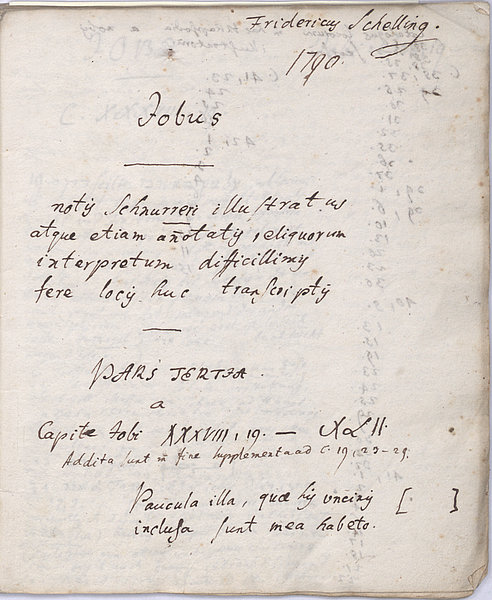 Fridericus Schelling.
1790.
Jobus
notis Schnurreri illustratus
atque etiam añotatis reliquorum
interpretum difficillimis
fere locis huc transcriptis
PARS TERTIA.
a
Capite Jobi XXXVIII, 19. — XLII.
Addita sunt in fine supplementa ad C. 19, 23-29.
Paucula illa, quæ his uncinis [ ]
inclusa sunt mea habeto.